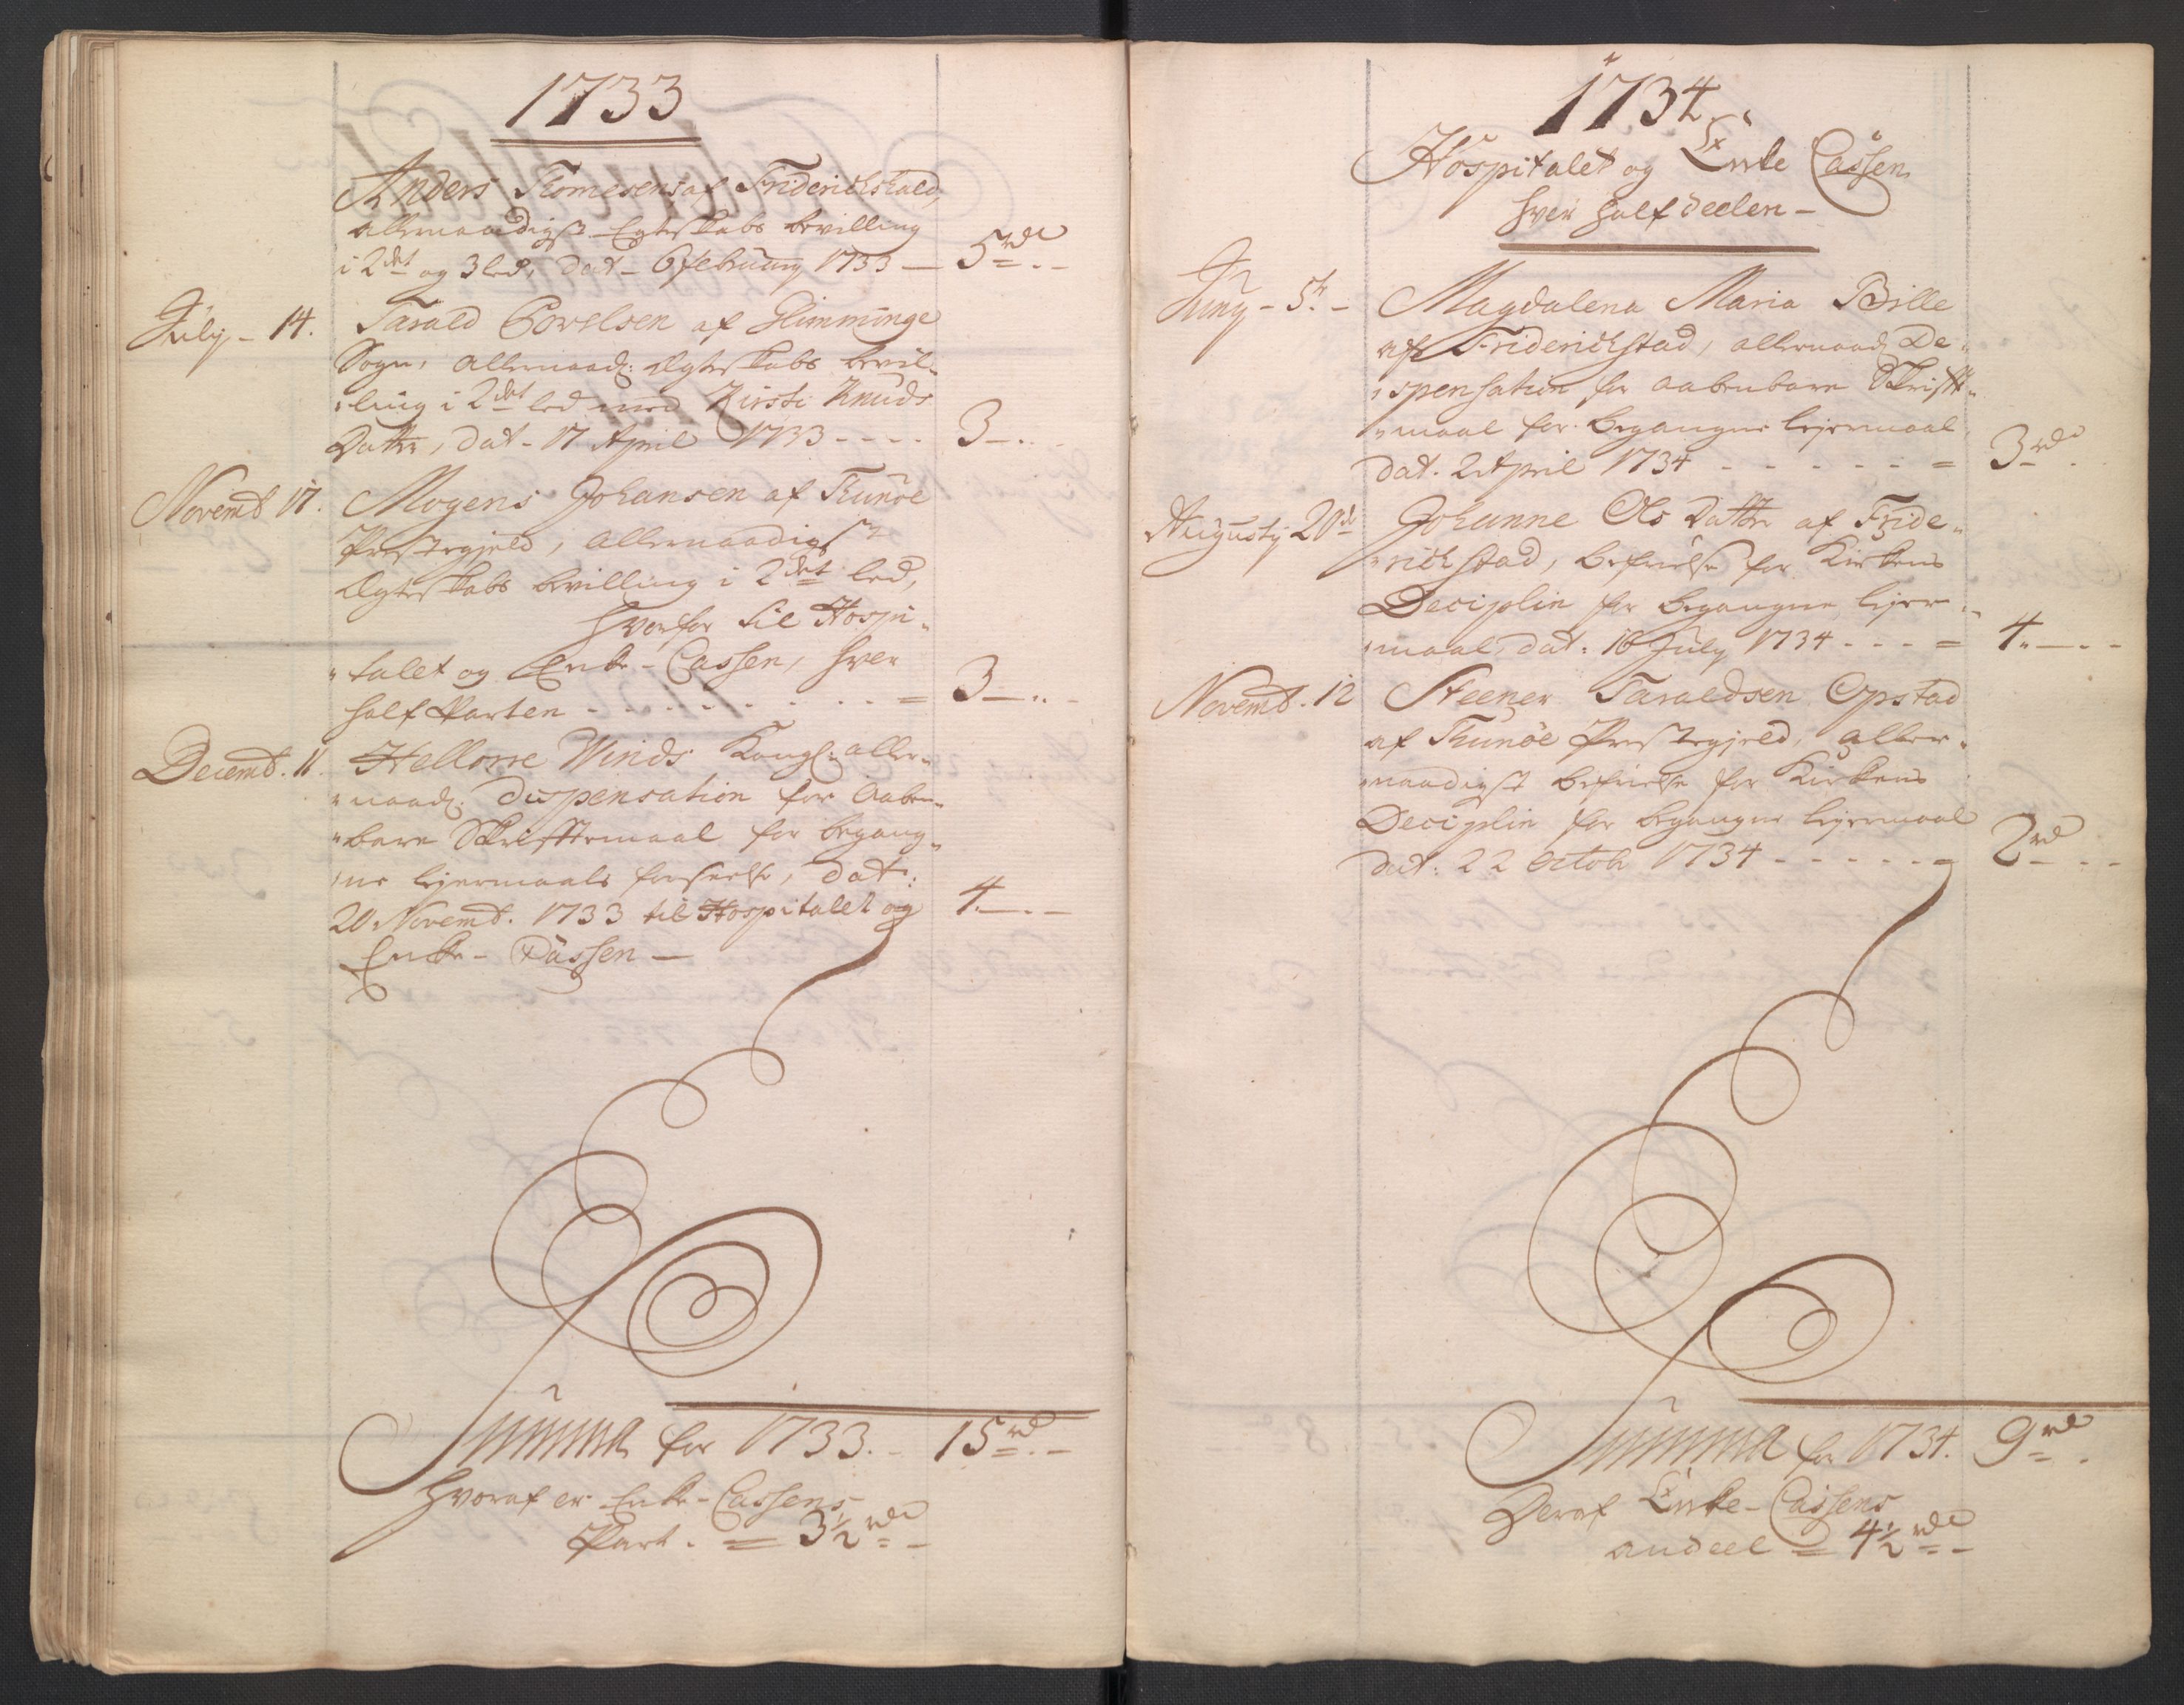 1733
Anders Tomesens af Friderichshald,
allernaadigst Egteskabs bevilling
i 2det og 3 led, dat– 6 february 1733 — 5 rdl
July – 14. Tarald Torelsen af Glimminge
Sogn, allernaad: Ægteskabs bevil„
„ling i 2det led med Kirsti Knuds
Datter, dat– 17 April 1733 - - - - 3 –
Novemb 17. Mogens Johansen af Thunöe
Prestegjeld, allernaadigst
Ægteskabs bevilling i 2det led,
hvorfor til Hospi„
„talet og Enke–Cassen, hver
half Parten - - - - - - = 3 –
Decemb. 11. Hellorne Winds Kongl: aller„
„naad: dispensation for Aaben„
„bare Skrifftemaal for begang„
„ne lejermaals forseelse, dat:
20 Novemb. 1733 til Hospitalet og 4 –
Enke–Cassen —
Summa for 1733. – 15 rd
hvoraf er Enke–Cassens
Part. = 3½ rdl
1734
Hospitalet og Enke Cassen
hver half deelen –
Juny – 5t. – Magdalena Maria Bille
af Friderichstad, allernaad De„
„spensation for aabenbare Skrifft„
„maal for begangne lejermaal,
dat. 2 April 1734 - - - - - = 3 rd
Augusty 20d Johanne Ols Datter af Fride„
„richstad, befrielse for Kirkens
Deciplin for begangne lejer„
„maal, dat: 16 July 1734 - - - = 4 –
Novemb. 12 Steener Taraldsen Opstad
af Thunöe Prestegjeld, aller„
„naadigst befrielse for Kirkens
Deciplin for begangne lejermaal
dat: 22 Octob 1734 - - - - - 2 rd
Summa for 1734. 9 rd
Deraf Enke–Cassens
andeel = 4½ rdl